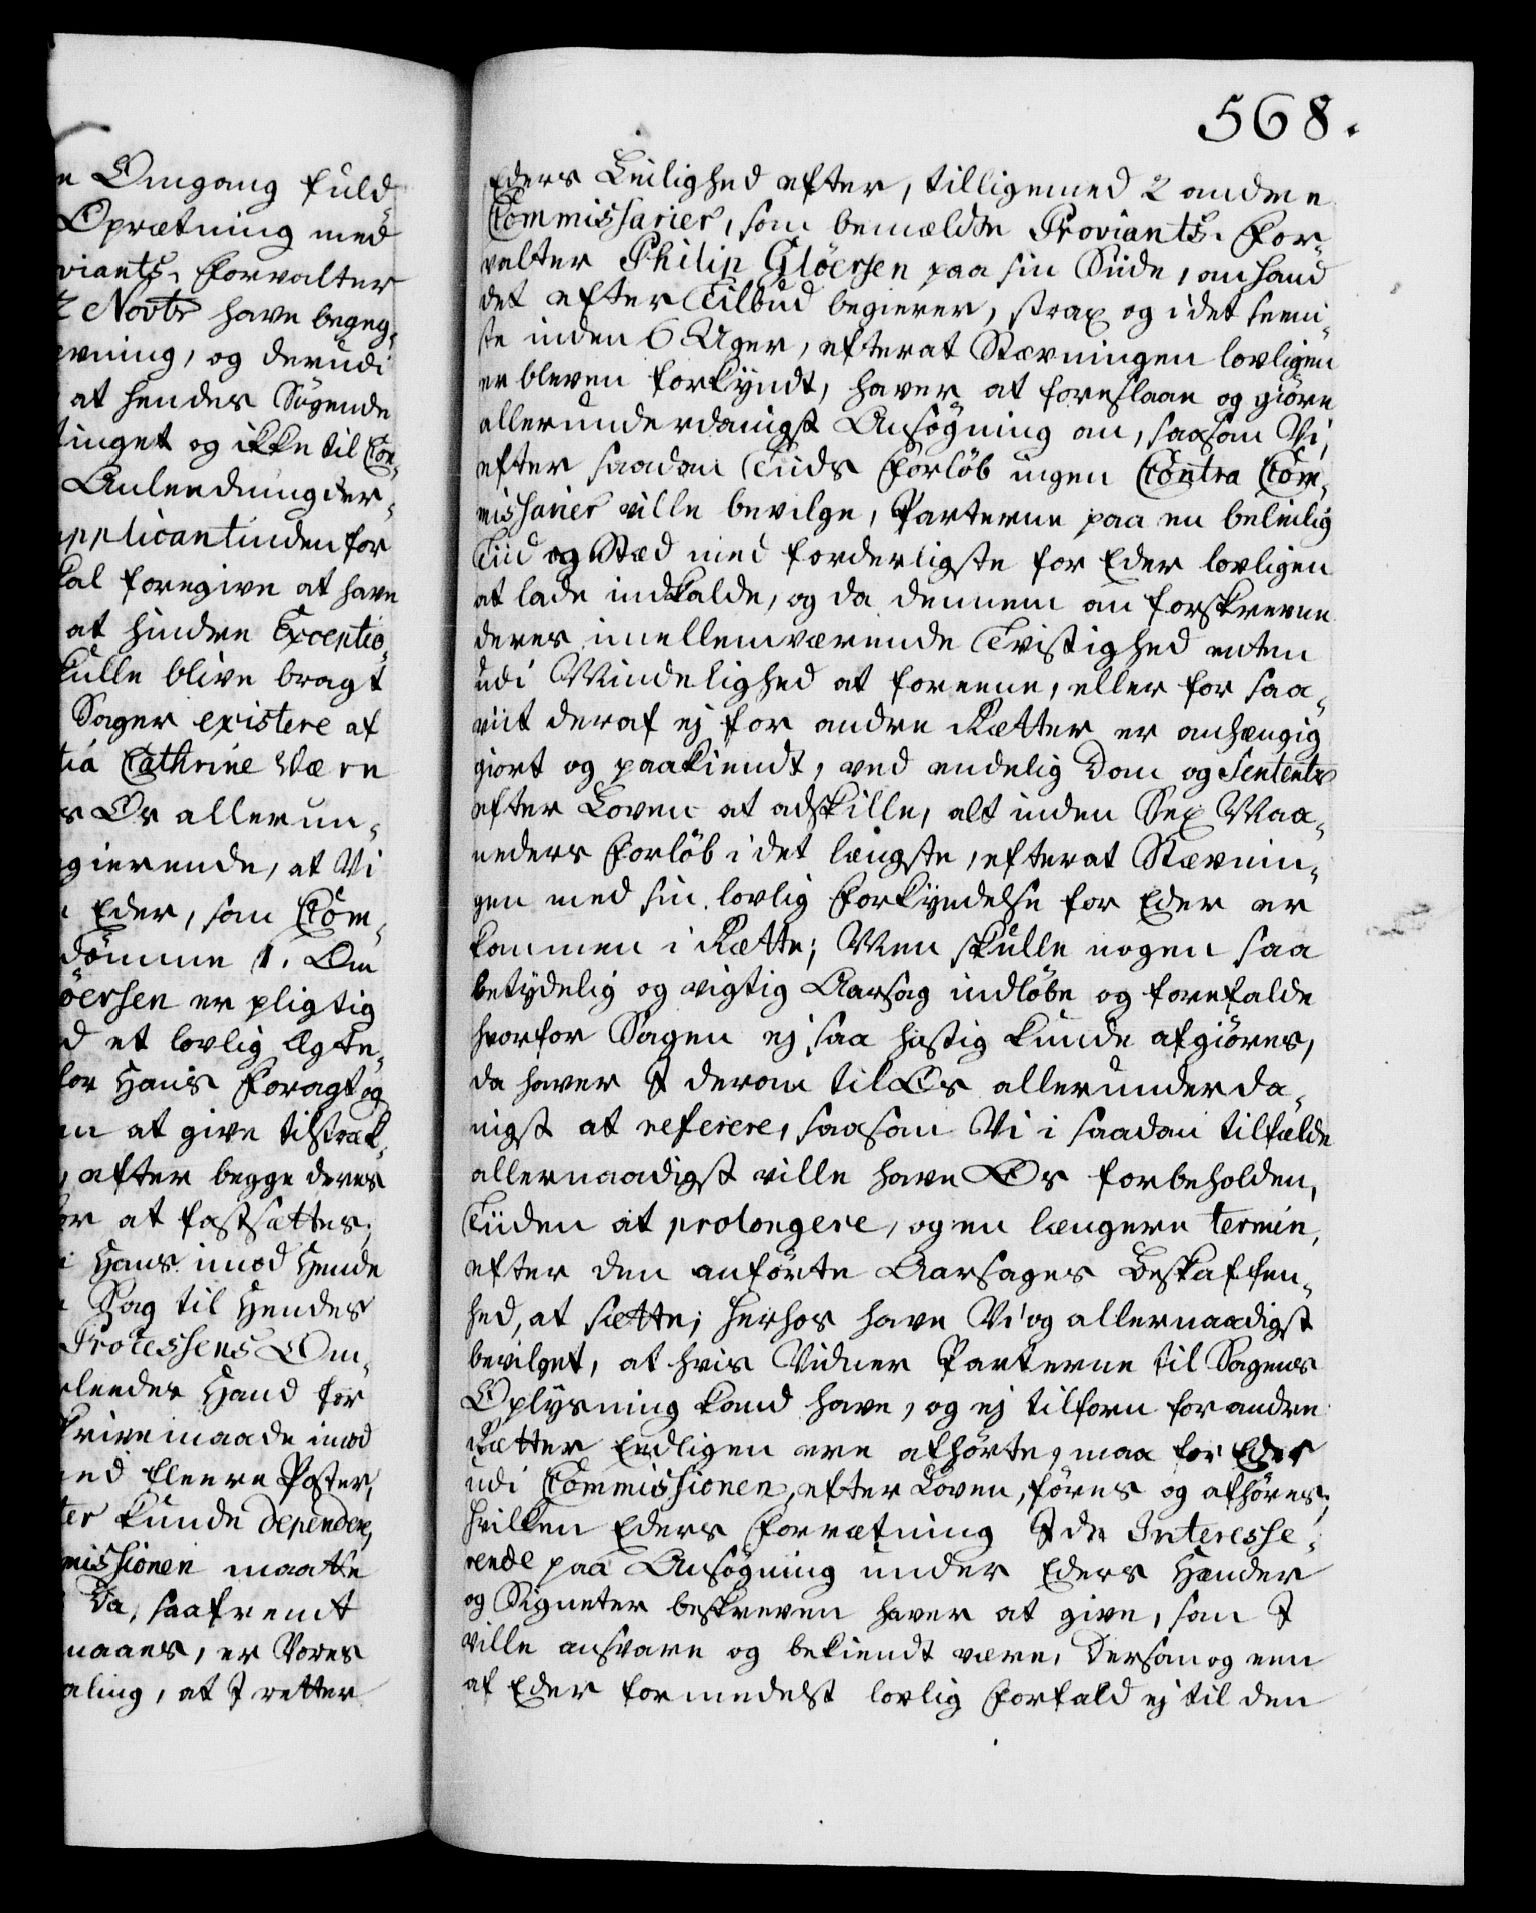 568.
n Omgang fuld
Oprætning med
viants. Forvalter
Novbr have begeg¬
ævning, og derudi
at hendes Søgende
tinget og ikke til Con¬
Anleedning der¬
pplicantinden for
kal foregive at have
at hindre Exceptio¬
kulle blive bragt
Sager existere af
tia Cathrine Værn
s Os allerun¬
gierende, at Vi
Eder, som Com¬
dömme 1. Om
öersen er pligtig
d et lovlig Ægte¬
for Hans Foragt og
m at give tilstræk¬
, efter begge deres
or at fastsættes;
i Hans imod Hende
Sag til Hendes
Processens Om¬
leedes Hand for
krivemaade imod
ed fleere Poster,
ter kunde dependere,
missionen maatte
Da, saafremt
maaes, er Vores
aling, at I retter
Eders Leilighed efter, tilligemed 2 andre
Commissarier, som bemældte Proviants. For¬
valter Philip Glöersen paa sin Siide, om hand
det efter Tilbud begierer, strax og i det seeni¬
ste inden 6 Uger, efterat Stævningen lovligen
er bleven forkyndt, haver at foreslaae og giöre
allerunderdanigst Ansøgning om, saasom Vi,
efter saadan Tiids Forlöb ingen Contra Com¬
missarier ville bevilge, Parterne paa en beleilig
Tiid og Stæd med forderligste for Eder lovligen
at lade indkalde, og da dennem om forskrevne
deres imellemværende Tvistighed enten
udi Mindelighed at foreene, eller for saa¬
viit deraf ej for andre Rætter er anhængig
giort og paakiendt, ved endelig Dom og Sententz
efter Loven at adskille, alt inden Sex Maa¬
neders Forlöb i det længste, efterat Stævnin¬
gen med sin lovlig Forkyndelse for Eder er
kommen i Rætte; Men skulle nogen saa
betydelig og vigtig Aarsag indlöbe og forefalde
hvorfor Sagen ej saa hastig kunde afgiöres,
da haver I derom til Os allerunderda¬
nigst at referere, saasom Vi i saadan tilfælde
allernaadigst ville have Os forbeholden,
Tiiden at prolongere, og en længere termin,
efter den anförte Aarsages Beskaffen¬
hed, at sætte; herhos have Vi og allernaadigst
bevilget, at hvis Vidner Parterne til Sagens
Oplysning kand have, og ej tilforn for andre
Rætter Eedligen ere afhörte, maa for Eder
udi Commissionen, efter Loven, föres og afhöres;
hvilken Eders Forrætning I de Interesse¬
rende paa Ansøgning under Eders Hænder
og Signeter beskreven haver at give, som I
ville ansvare og bekiendt være, Dersom og een
af Eder formedelst lovlig Forfald ej til den